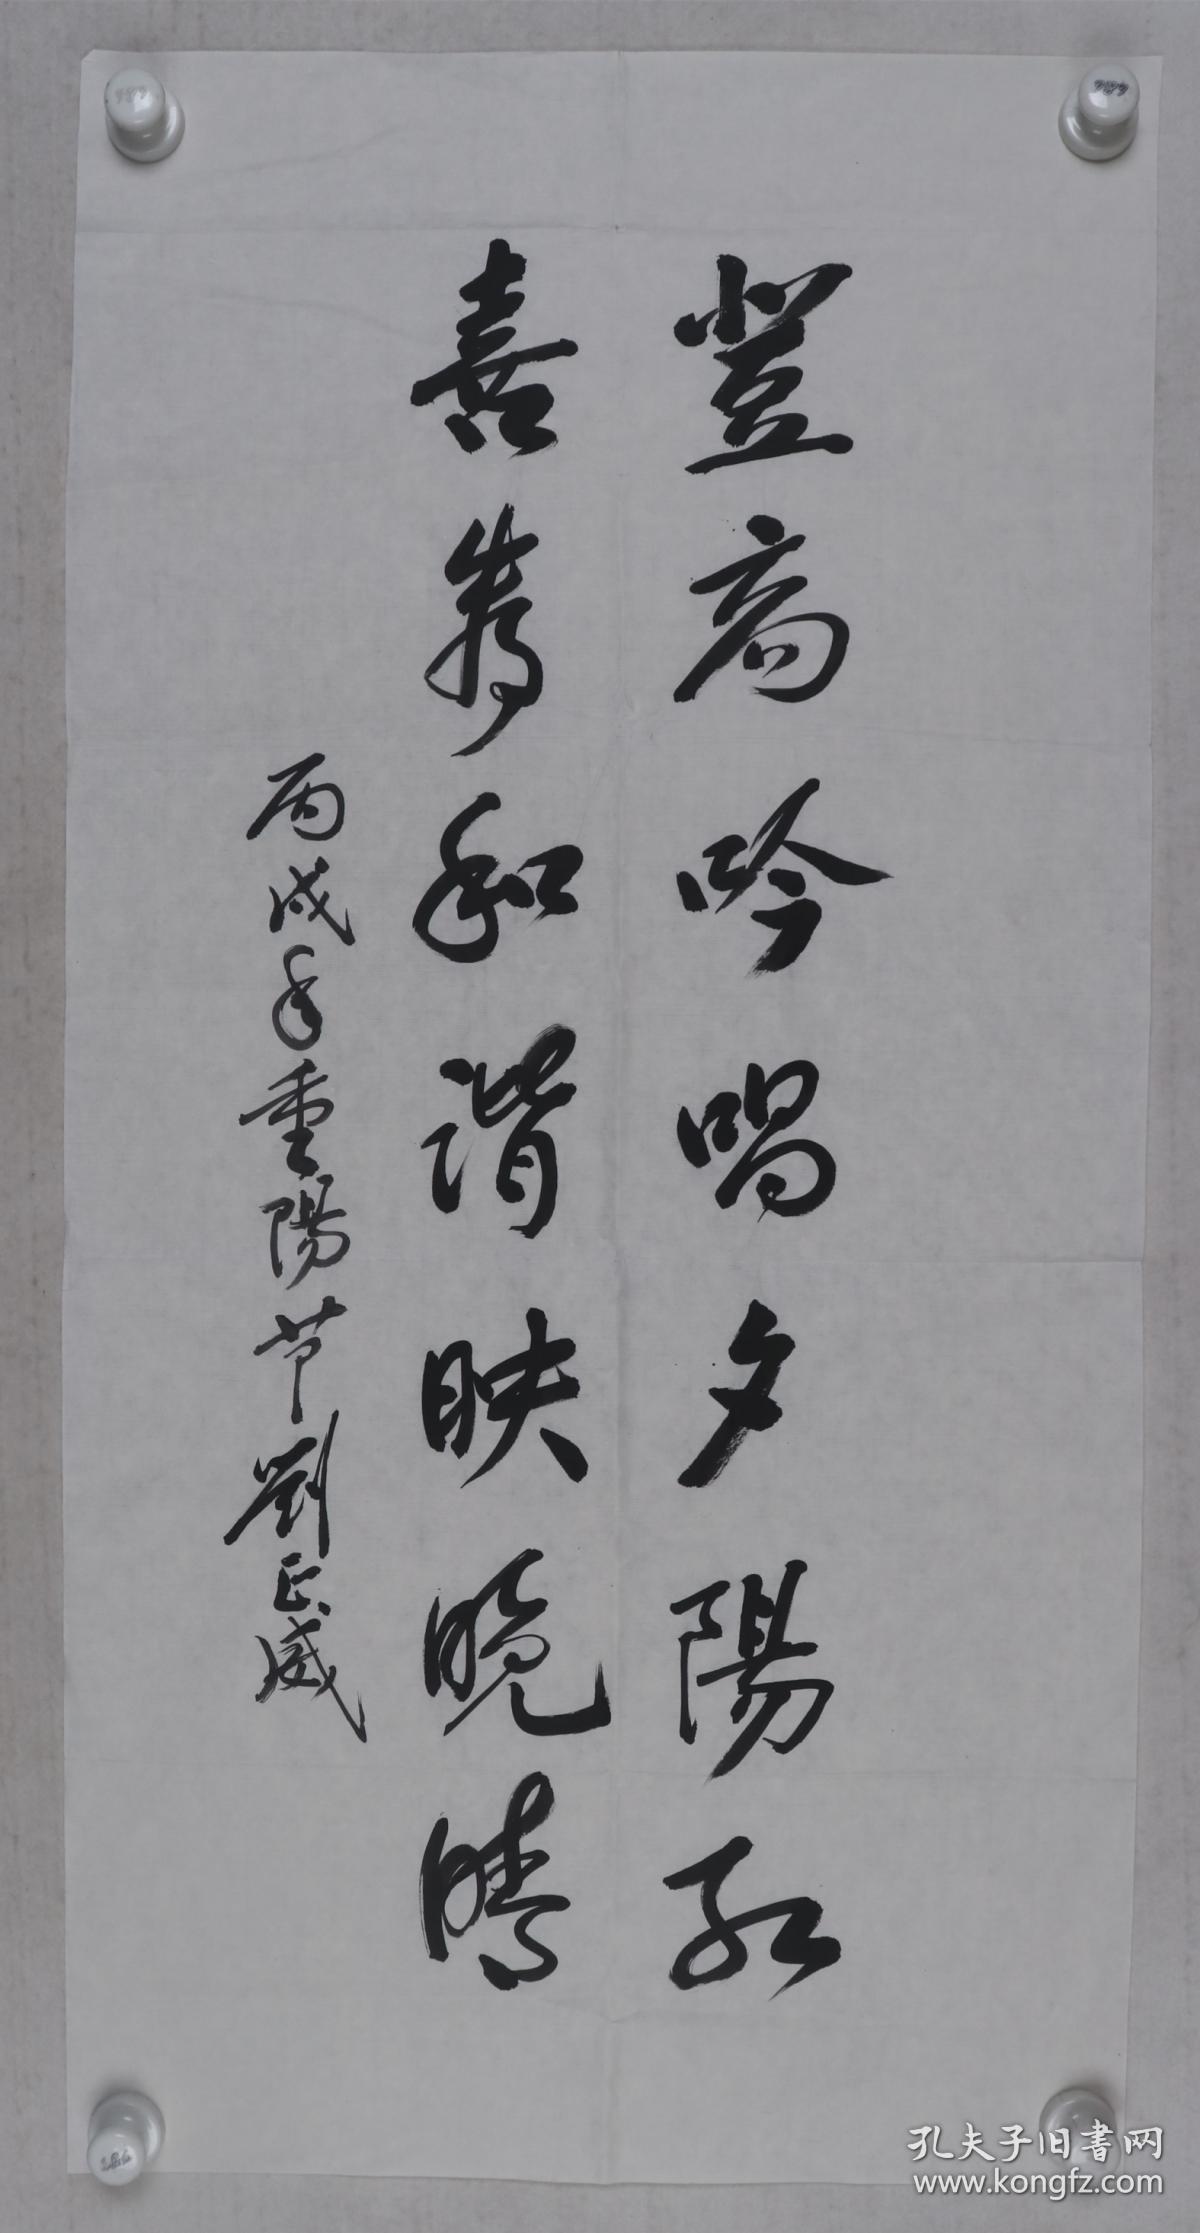 登高吟唱夕陽红
喜寿和谐映晚晴
丙戌年重陽节劉正威
孔夫子旧書网
www.kongfz.com